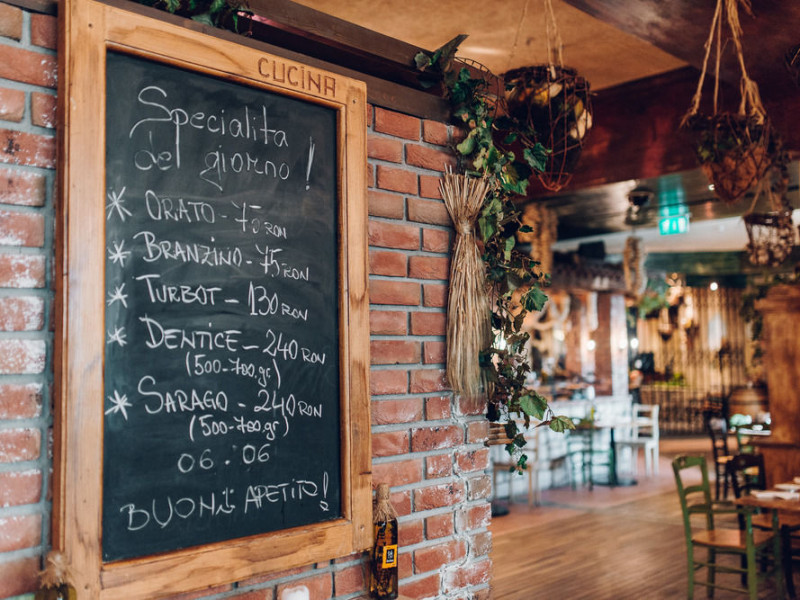 CUCINA
Specialita
del giorno!
* ORATO - 75 RON
* BRANZINO - 75 RON
* TURBOT - 130 RON
* DENTICE - 240 RON
(500-700gr)
* SARAGO - 240 RON
(500-700gr)
06.06
BUONI APETITO!